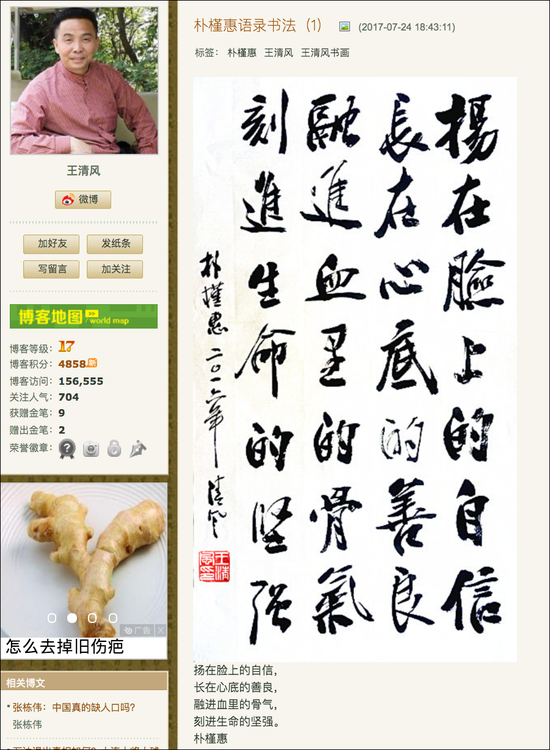 王清风
微博
加好友 发纸条
写留言 加关注
博客地图
world map
博客等级：17
博客积分：4858 新
博客访问：156,555
关注人气：704
获赠金笔：9
赠出金笔：2
荣誉徽章：
广告
怎么去掉旧伤疤
相关博文
张栋伟：中国真的缺人口吗？
张栋伟
朴槿惠语录书法（1） (2017-07-24 18:43:11)
标签： 朴槿惠 王清风 王清风书画
揚在臉上的自信
長在心底的善良
融進血里的骨氣
刻進生命的坚强
朴槿惠 二〇一六年 清风
王清風
扬在脸上的自信，
长在心底的善良，
融进血里的骨气，
刻进生命的坚强。
朴槿惠